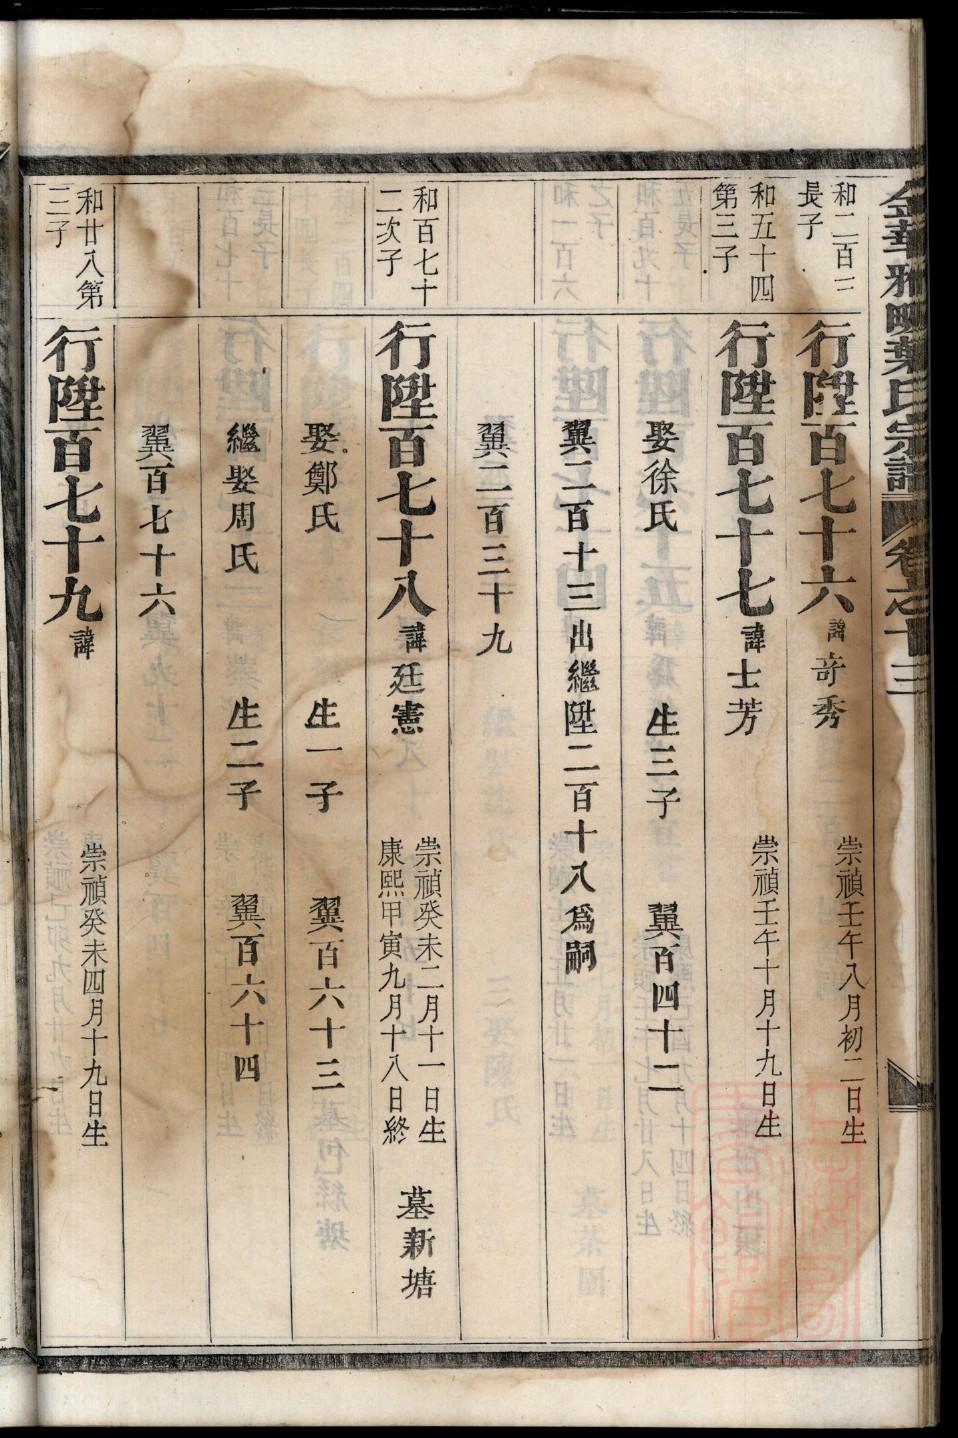 金華雅畈葉氏宗譜 卷之十三
和二百三
長子
行陞百七十六 諱 奇秀 崇禎壬午八月初二日生
和五十四
第三子
行陞百七十七 諱 士芳 崇禎壬午十月十九日生
娶徐氏 生三子 翼百四十二
翼二百十三出繼陞二百十八為嗣
翼二百三十九
和百七十
二次子
行陞百七十八 諱 廷憲 崇禎癸未二月十一日生
康熙甲寅九月十八日終 墓新塘
娶鄭氏 生一子 翼百六十三
繼娶周氏 生二子 翼百六十四
翼百七十六
和廿八第
三子
行陞百七十九 諱 崇禎癸未四月十九日生